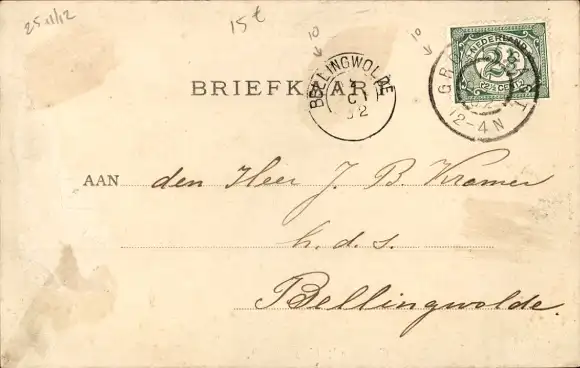 25 11/12
15 ct
10
10
NEDERLAND
2½
(2½ CENT)
BELLINGWOLDE
BRIEFKAART
12-4N
AAN den Heer J. B. Kramer
h. d. s.
Bellingwolde.